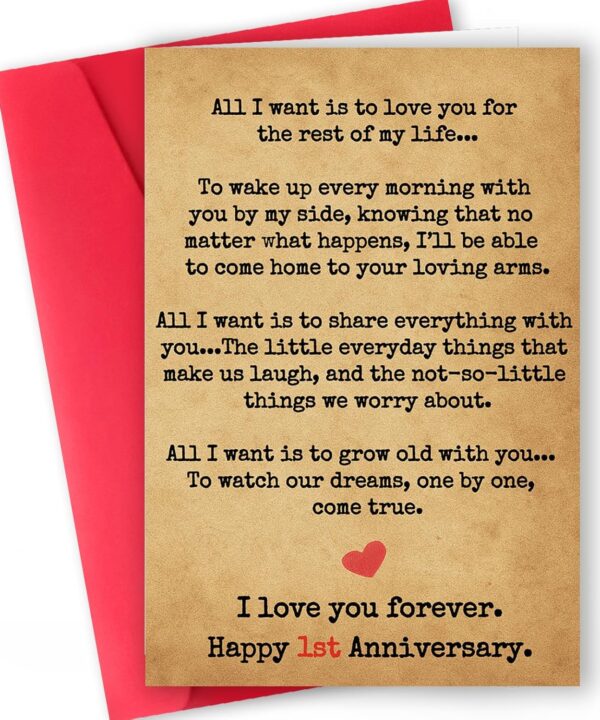 All I want is to love you for
the rest of my life...
To wake up every morning with
you by my side, knowing that no
matter what happens, I'll be able
to come home to your loving arms.
All I want is to share everything with
you...The little everyday things that
make us laugh, and the not-so-little
things we worry about.
All I want is to grow old with you...
To watch our dreams, one by one,
come true.
I love you forever.
Happy 1st Anniversary.